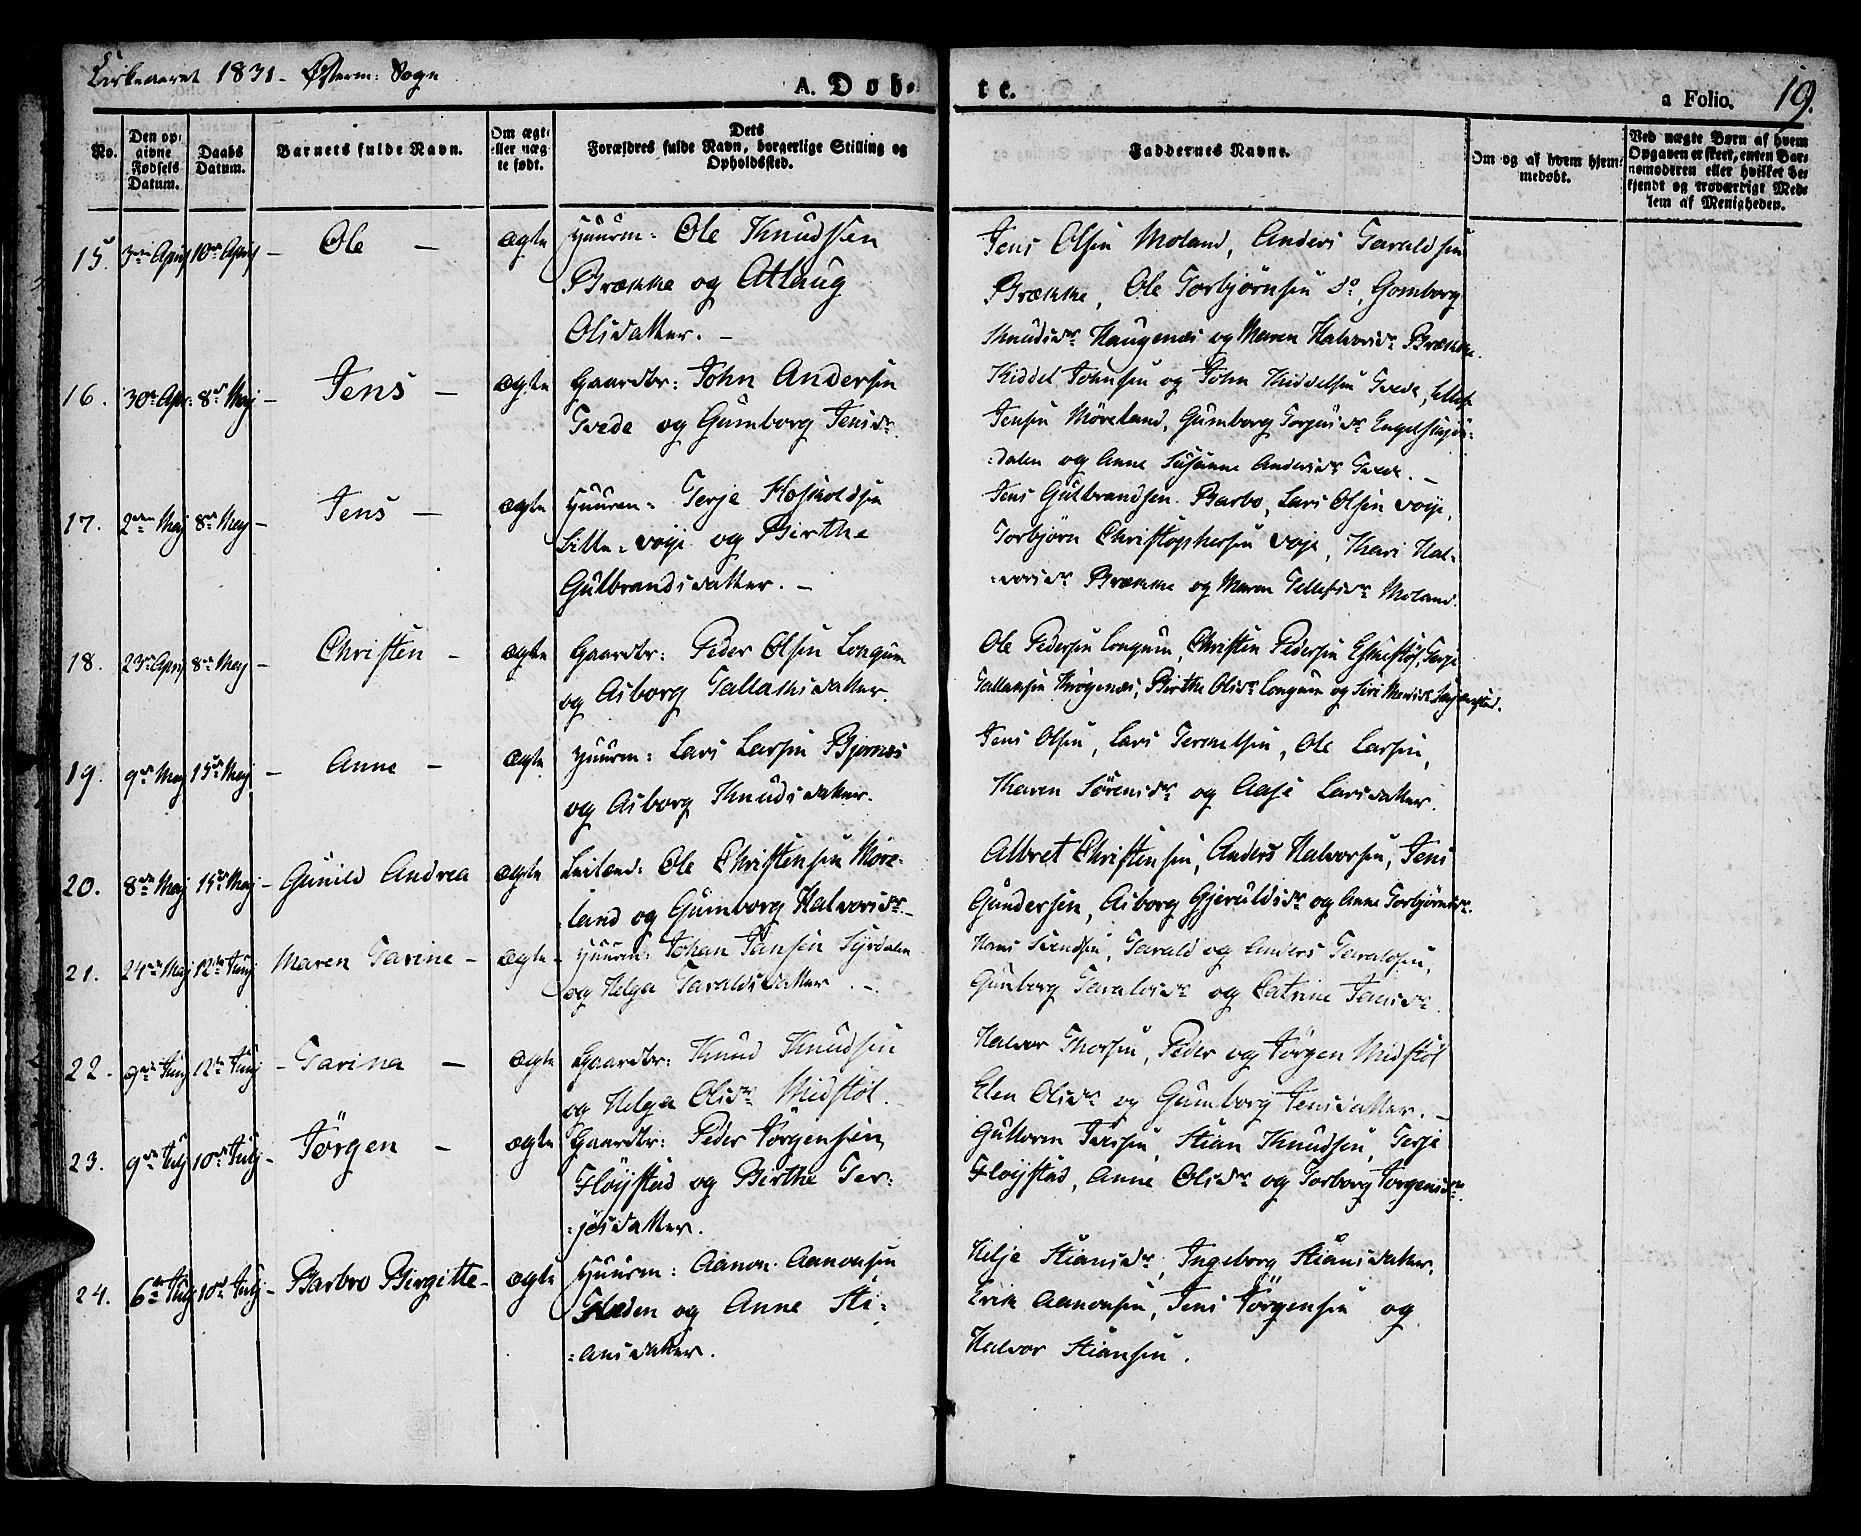 Kirkeaaret 1831 - Østerm: Sogn
A. Døb-
te.
a Folio. 19.
No.
Den opgivne Fødsels Datum.
Daabs Datum.
Barnets fulde Navn.
Om ægte eller uægte født.
Dets Forældres fulde Navn, borgerlige Stilling og Opholdssted.
Faddernes Navne.
Om og af hvem hjemmedøbt.
Ved uægte Børn af hvem Opgaven er skeet, enten Barnemoderen eller hvilket bekjendt og troværdigt Medlem af Menigheden.
15. 3die April 10de April - Ole - ægte Huusm: Ole Knudsen
Brække og Atlaug
Olsdatter. -
Jens Olsen Moland, Anders Taraldsen
Brække, Ole Torbjørnsen do, Gomborg
Knudsdr Haugenæs og Maren Halvorsdr Brække.
16. 30te Apr: 8de Maj - Jens - ægte Gaardbr: John Andersen
Tvede og Gumborg Jensdr.
Kiddel Johnsen og John Kiddelsen Tvede, Ellef
Jensen Möreland, Gumborg Torjusdr
=dalen og Anne Susanne Andersdr Tvede. -
17. 2den Maj 8de Maj - Jens - ægte Huusm: Terje Hoskoldsen
Lille=voje og Birthe
Gulbrandsdatter. -
Jens Gulbrandsen Barbo, Lars Olsen voje,
Torbjörn Christophersen voje, Kari Hal=
=vorsdr Brække og Maren Tellefsdr Moland.
18. 23de April 8de Maj - Christen - ægte Gaardbr: Peder Olsen Longum
og Asborg Tallaksdatter.
Ole Pedersen Longum, Christen Pedersen Terje
Tallaksen Krögenæs, Birthe Olsdr Longum og Siri
19. 9de Maj 15de Maj - Anne - ægte Huusm: Lars Larsen Bjornæs
og Asborg Knudsdatter.
Jens Olsen, Lars Ole Larsen,
Karen Sörensdr og Aase Larsdatter.
20. 8de Maj 15de Maj - Gunild Andrea ægte Leilænd: Ole Christensen Möre=
=land og Gumborg Halvorsdr. -
Albret Christensen, Anders Halvorsen, Jens
Gundersen, Asborg Gjeruldsdr og Anne Torbjörnsdr.
21. 24de Maj 12te Junj Maren Tarine - ægte - Huusm: Johan Jansen Syrdalen
og Helga Taraldsdatter. -
Hans Svendsen, Tarald og Anders Taraldsen,
Gunborg Taraldsdr og Catrine Jansdr.
22. 9de Junj 12te Junj - Tarina - ægte Gaardbr: Knud Knudsen
og Helga Olsdr Midstöl.
Halvor Thorsen, Peder og Jörgen Midstöl
Elen Olsdr og Gumborg Jensdatter. -
23. 9de Julj 10de Julj - Jörgen - ægte Gaardbr: Peder Jörgensen
Flöjstad og Birthe Ter=
=jesdatter.
Guttorm Stian Knudsen, Terje
Flöjstad, Anne Olsdr og Torborg Jörgensdr.
24. 6te 10de Julj - Barbro Birgitte - ægte Huusm: Aanon Aanonsen
Fladen og Anne Sti=
=ansdatter.
Helje Stiansdr, Ingeborg Stiansdatter,
Erik Aanonsen, Jens Jörgensen og
Halvor Stiansen.